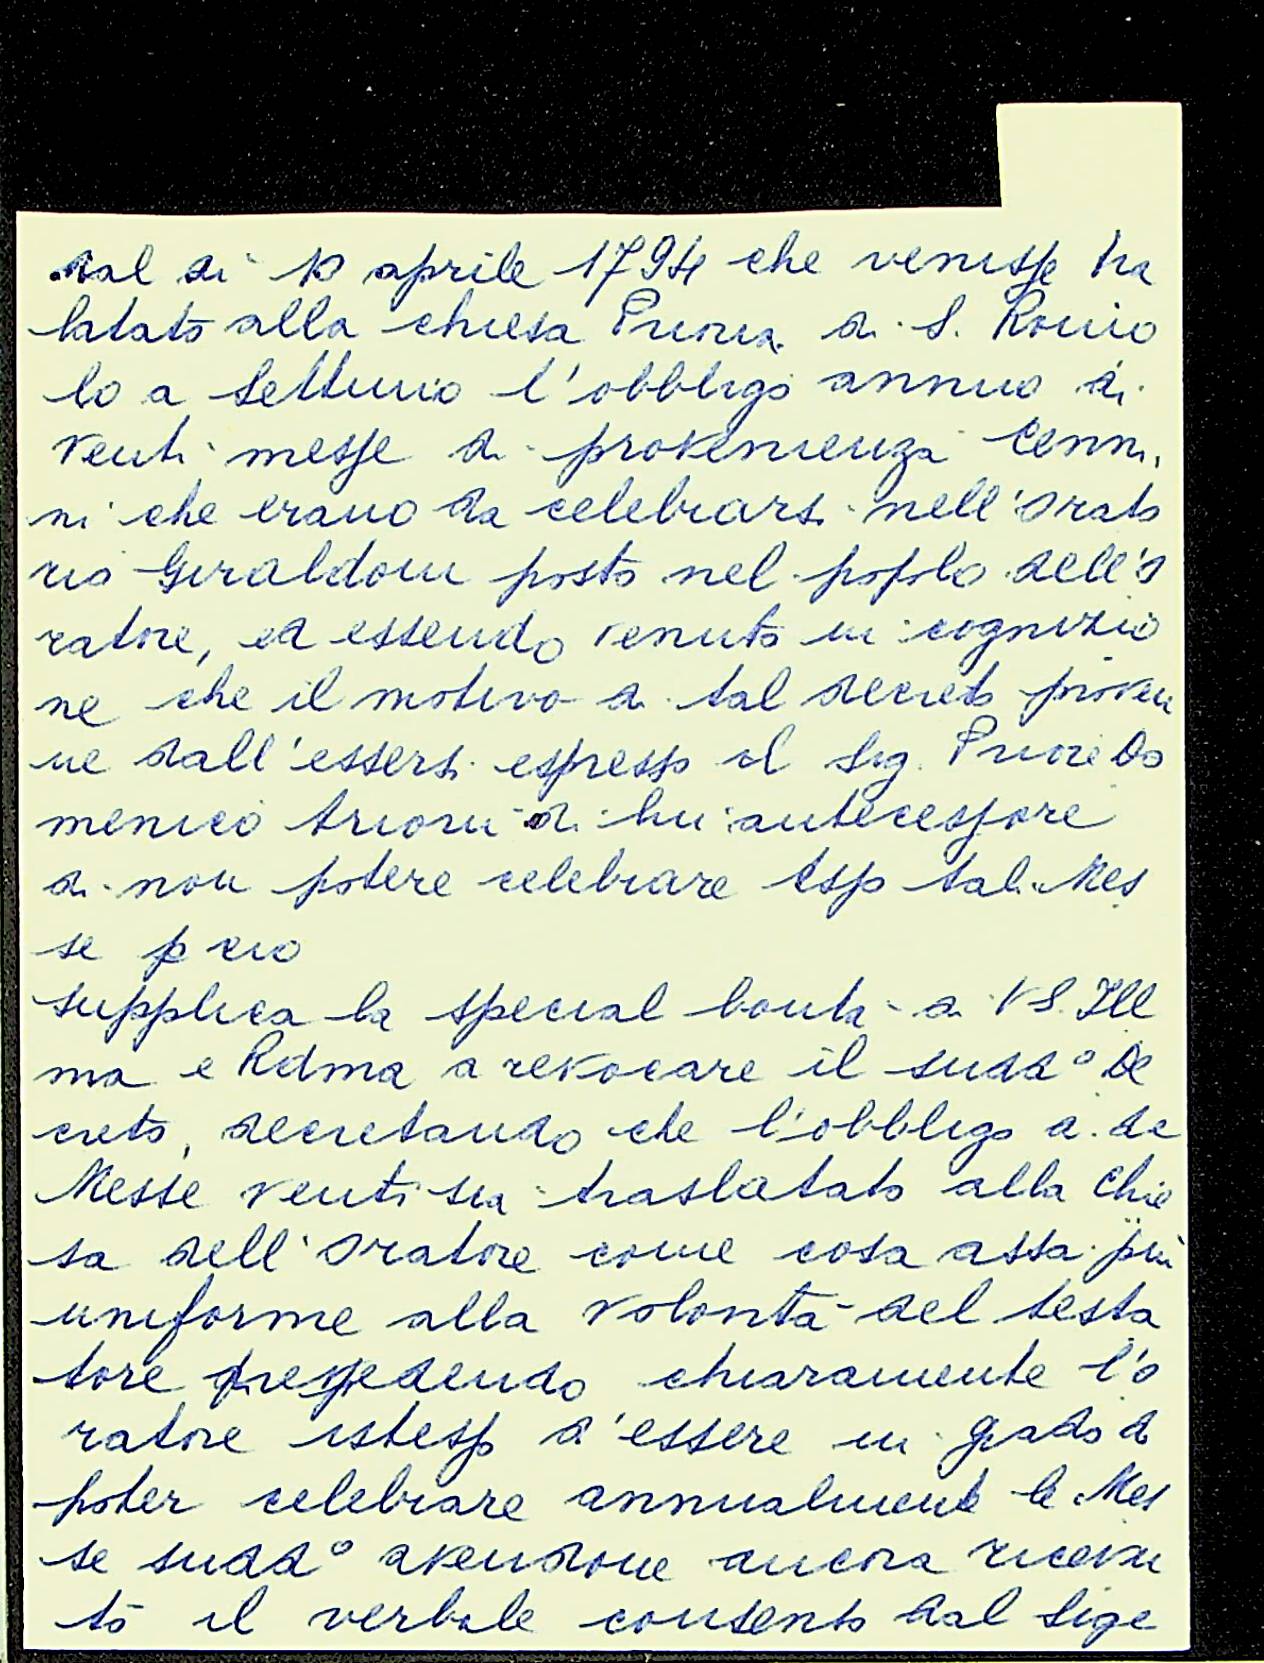 dal di 10 aprile 1794 che venisse tra
latato alla chiesa Prioria di S. Romo
lo a Settimo l'obbligo annuo di
venti messe di provenienza Cenni,
ni che erano da celebrarsi nell'orato
rio Giraldoni posto nel popolo dell'o
ratore, ed essendo venuto in cognizio
ne che il motivo di tal decreto proven
ne dall'essersi espresso il Sig. Priore Do
menico Arioni di lui antecessore
di non potere celebrare esso tali Mes
se p cio
supplica la special bontà di VS. Ill
ma e Rdma a revocare il sudd° De
creto, decretando che l'obbligo di de
Messe venti sia traslatato alla Chie
sa dell'oratore come cosa assai più
uniforme alla volontà del testa
tore
chiaramente l'o
ratore istesso d'essere in grado di
poter celebrare annualmente le Mes
se sudd° avendone ancora ricevu
to il verbale consenso dal Sige